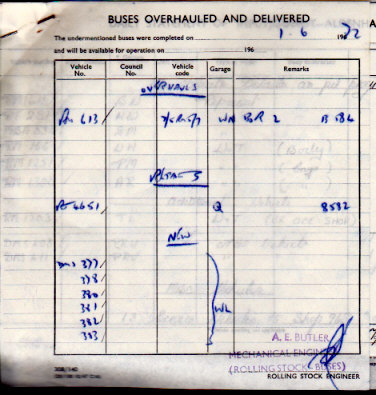 BUSES OVERHAULED AND DELIVERED
The undermentioned buses were completed on 1 6 1972
and will be available for operation on 196
Vehicle No. Council No. Vehicle code Garage Remarks
OVERHAULS
613/ WN BR 2 B 584
4651/ Q 8582
NEW
DMS 377/
378/
380/
381/ WL
382/
383/
A. E. BUTLER
MECHANICAL ENGINEER
(ROLLING STOCK BUSES)
ROLLING STOCK ENGINEER